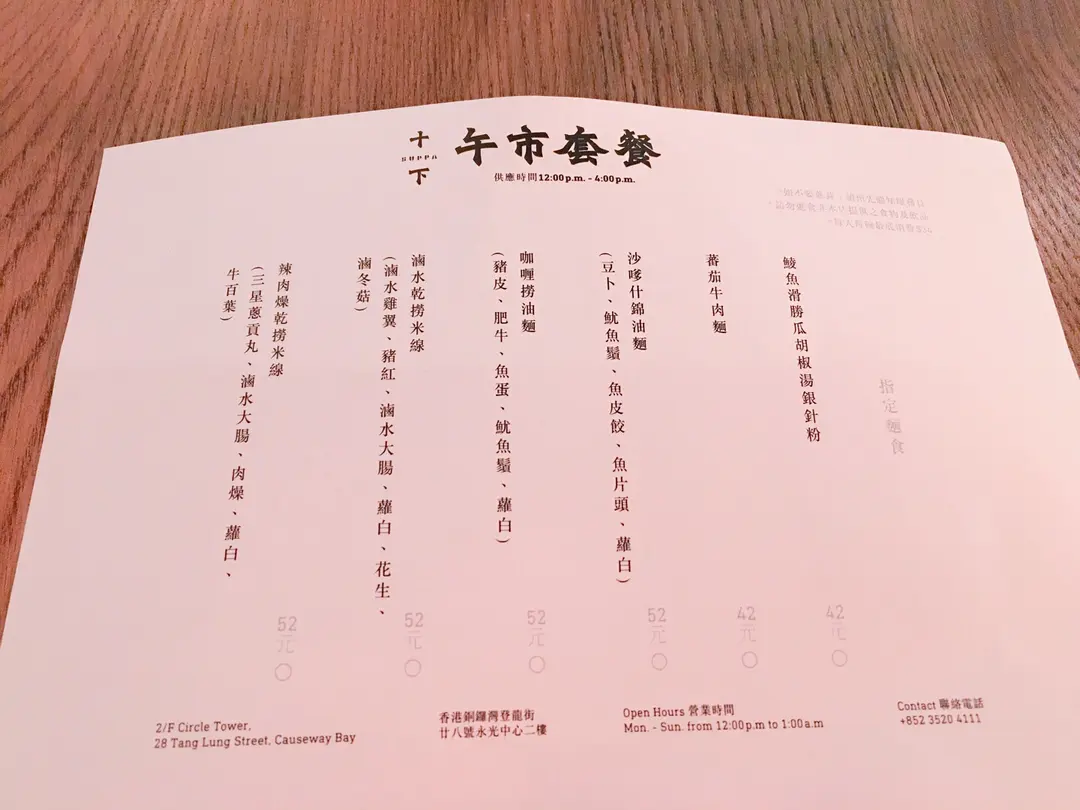 十
SUPPA
下
午市套餐
供應時間12:00p.m. - 4:00p.m.
指定麵食
鯪魚滑勝瓜胡椒湯銀針粉
42元
蕃茄牛肉麵
42元
沙嗲什錦油麵
(豆卜、魷魚鬚、魚皮餃、魚片頭、蘿白)
52元
咖喱撈油麵
(豬皮、肥牛、魚蛋、魷魚鬚、蘿白)
52元
滷水乾撈米線
(滷水雞翼、豬紅、滷水大腸、蘿白、花生、
滷冬菇)
52元
辣肉燥乾撈米線
(三星蔥貢丸、滷水大腸、肉燥、蘿白、
牛百葉)
52元
2/F Circle Tower,
28 Tang Lung Street, Causeway Bay
香港銅鑼灣登龍街
廿八號永光中心二樓
Open Hours 營業時間
Mon. - Sun. from 12:00p.m to 1:00a.m
Contact 聯絡電話
+852 3520 4111